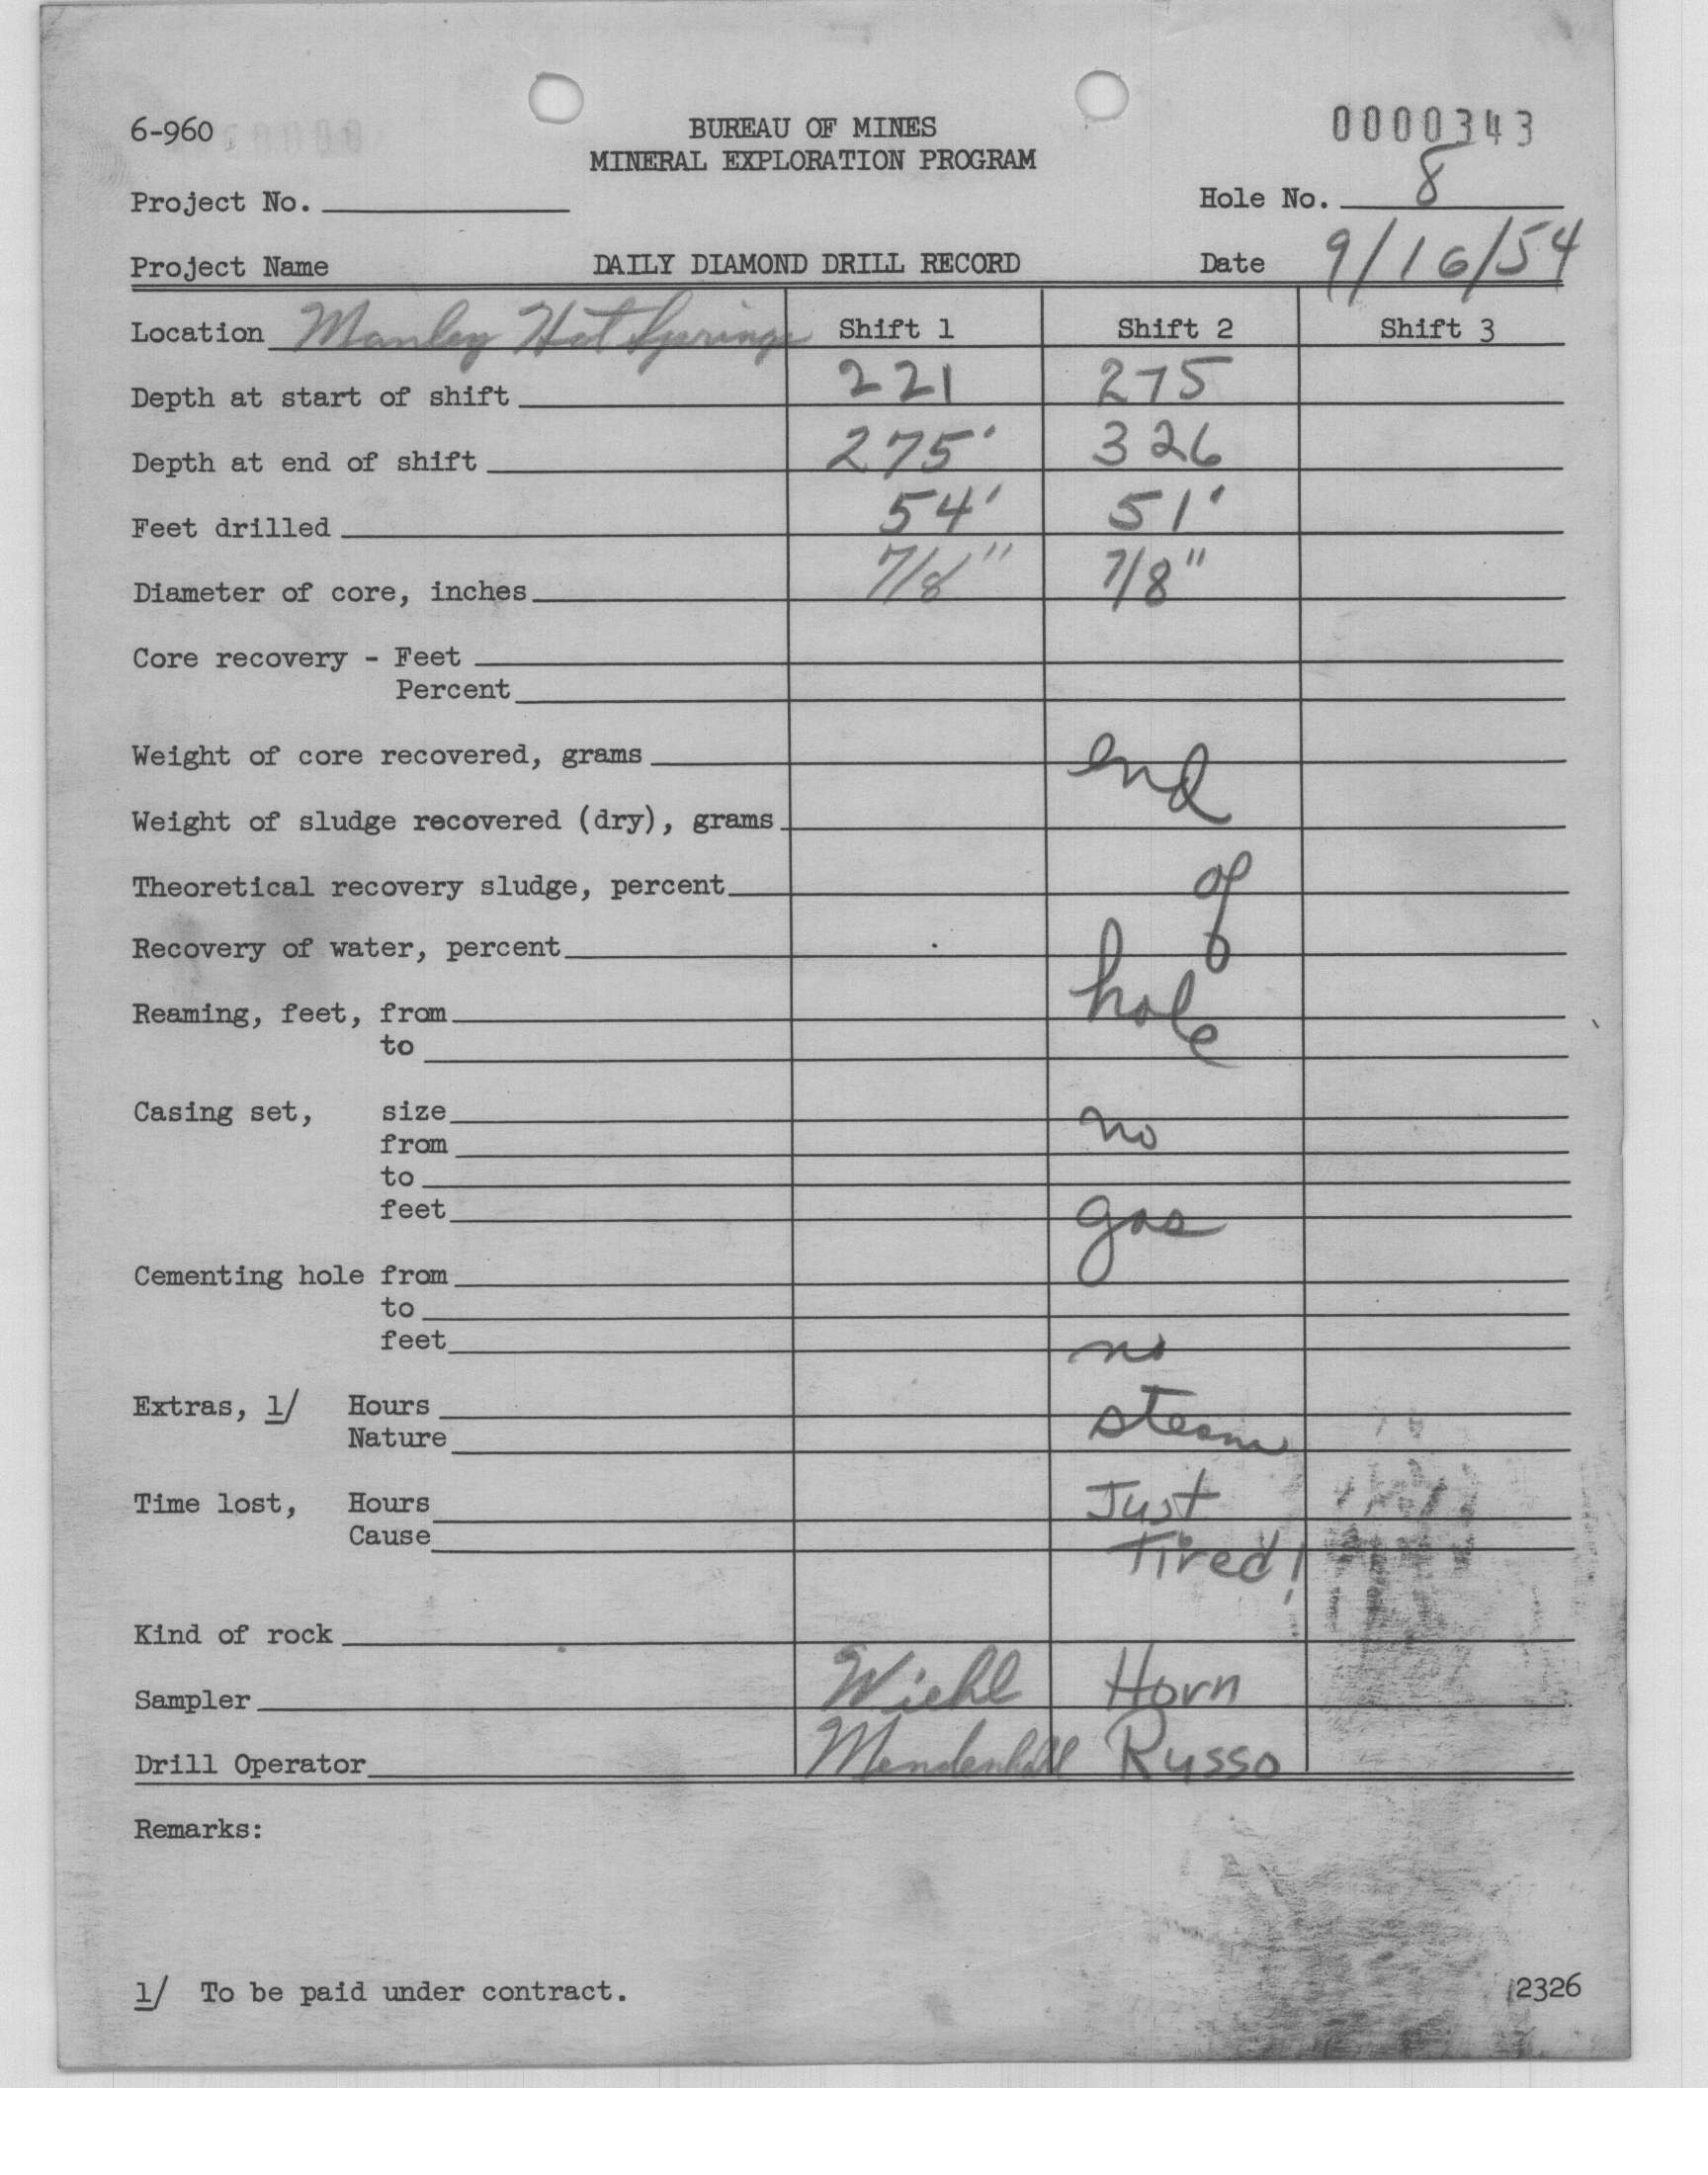 6-960
BUREAU OF MINES
0000343
MINERAL EXPLORATION PROGRAM
Project No.
Hole No. 8
Project Name DAILY DIAMOND DRILL RECORD Date 9/16/54
Location Manley Hot Springs Shift 1 Shift 2 Shift 3
Depth at start of shift 221 275
Depth at end of shift 275' 326
Feet drilled 54' 51'
Diameter of core, inches 7/8" 7/8"
Core recovery - Feet
Percent
Weight of core recovered, grams end
Weight of sludge recovered (dry), grams
Theoretical recovery sludge, percent of
Recovery of water, percent
Reaming, feet, from hole
to
Casing set, size no
from
to
feet gas
Cementing hole from
to
feet no
Extras, 1/ Hours steam
Nature
Time lost, Hours Just
Cause Tired!
Kind of rock
Sampler Wiehl Horn
Drill Operator Mendenhall Russo
Remarks:
1/ To be paid under contract.
12326